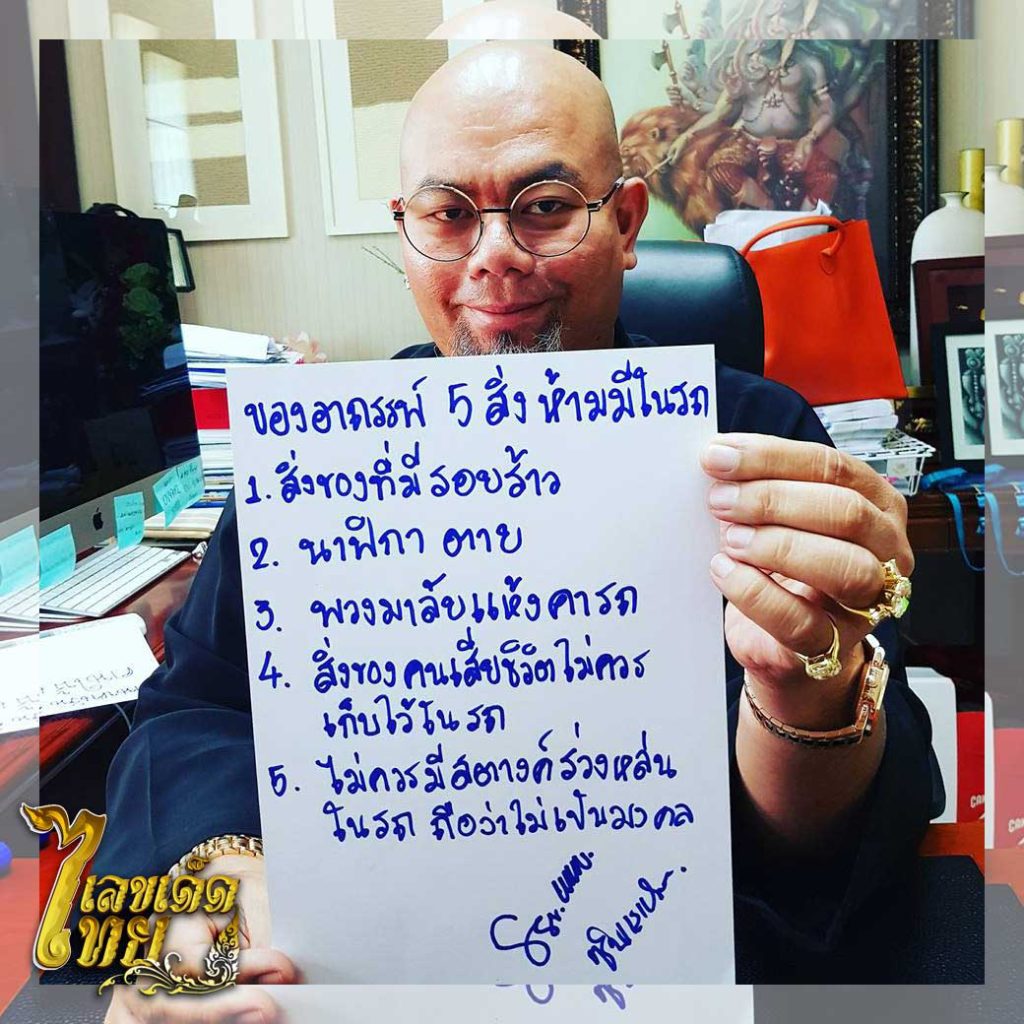 ของอาถรรพ์ 5 สิ่ง ห้ามมีในรถ
1. สิ่งของที่มีรอยร้าว
2. นาฬิกา ตาย
3. พวงมาลัยแห้งคารถ
4. สิ่งของคนเสียชีวิตไม่ควร
เก็บไว้ในรถ
5. ไม่ควรมีสตางค์ร่วงหล่น
ในรถ ถือว่าไม่เป็นมงคล
เลขเด็ด
ไทย
CAN